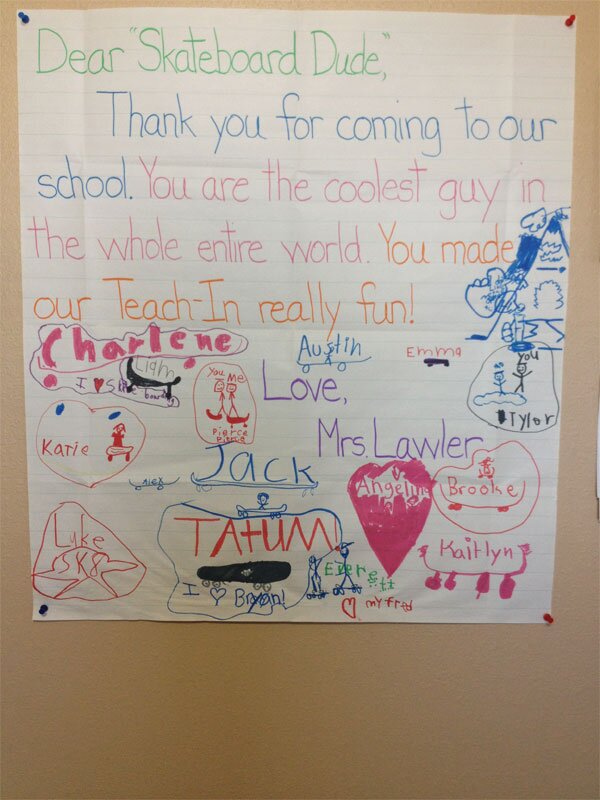 Dear "Skateboard Dude,"
Thank you for coming to our
school. You are the coolest guy in
the whole entire world. You made
our Teach-In really fun!
Charlene
Liam
I ♥ Skateboarding
Austin
Emma
You Me
Pierce
Love,
You
Tyler
Mrs. Lawler
Katie
Alex
Jack
Angelina
Brooke
Luke
SK8
TATUM!
I ♡ Bryan!
Kaitlyn
Everitt
♡ my fred